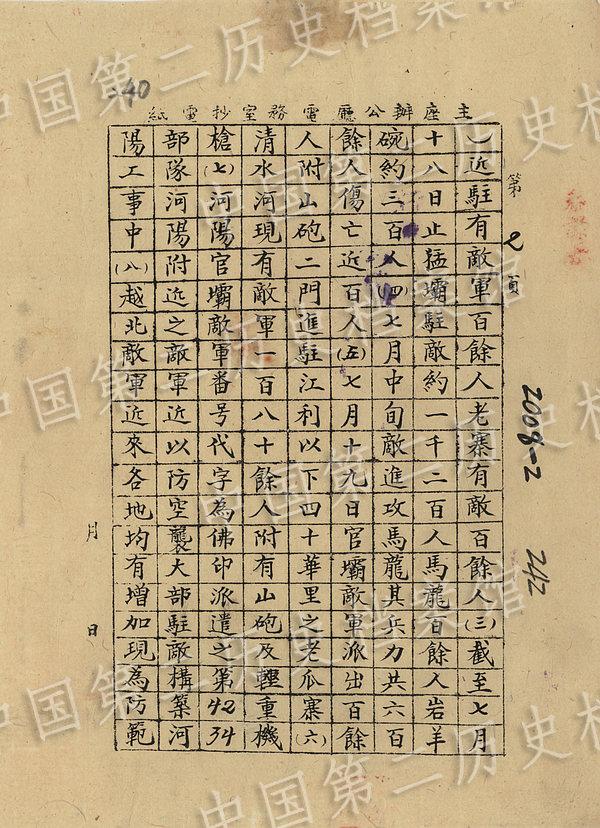 主座辦公廳電務室抄電紙
第2頁
近駐有敵軍百餘人老寨有敵百餘人(三)截至七月
十八日止猛壩駐敵約一千二百人馬龍百餘人岩羊
碗約三百人(四)七月中旬敵進攻馬龍其兵力共六百
餘人傷亡近百人(五)七月十九日官壩敵軍派出百餘
人附山砲二門進駐江利以下四十華里之老瓜寨(六)
清水河現有敵軍一百八十餘人附有山砲及輕重機
槍(七)河陽官壩敵軍番号代字為佛印派遣之第4234
部隊河陽附近之敵軍近以防空襲大部駐敵構築河
陽工事中(八)越北敵軍近來各地均有增加現為防範
月 日
40
2008-2
242
中国第二历史档案馆
中国第二历史档案馆
中国第二历史档案馆
中国第二历史档